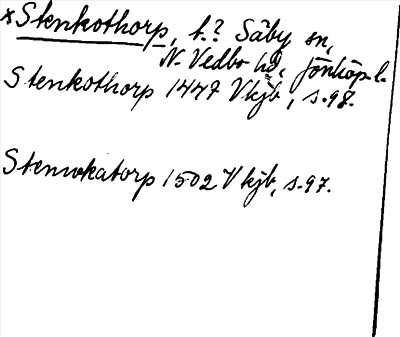 x Stenkothorp, t.? Säby sn,
N. Vedbo hd, Jönköp. l.
Stenkothorp 1447 Vkjb, s. 98.
Stenwkatorp 1502 Vkjb, s. 97.